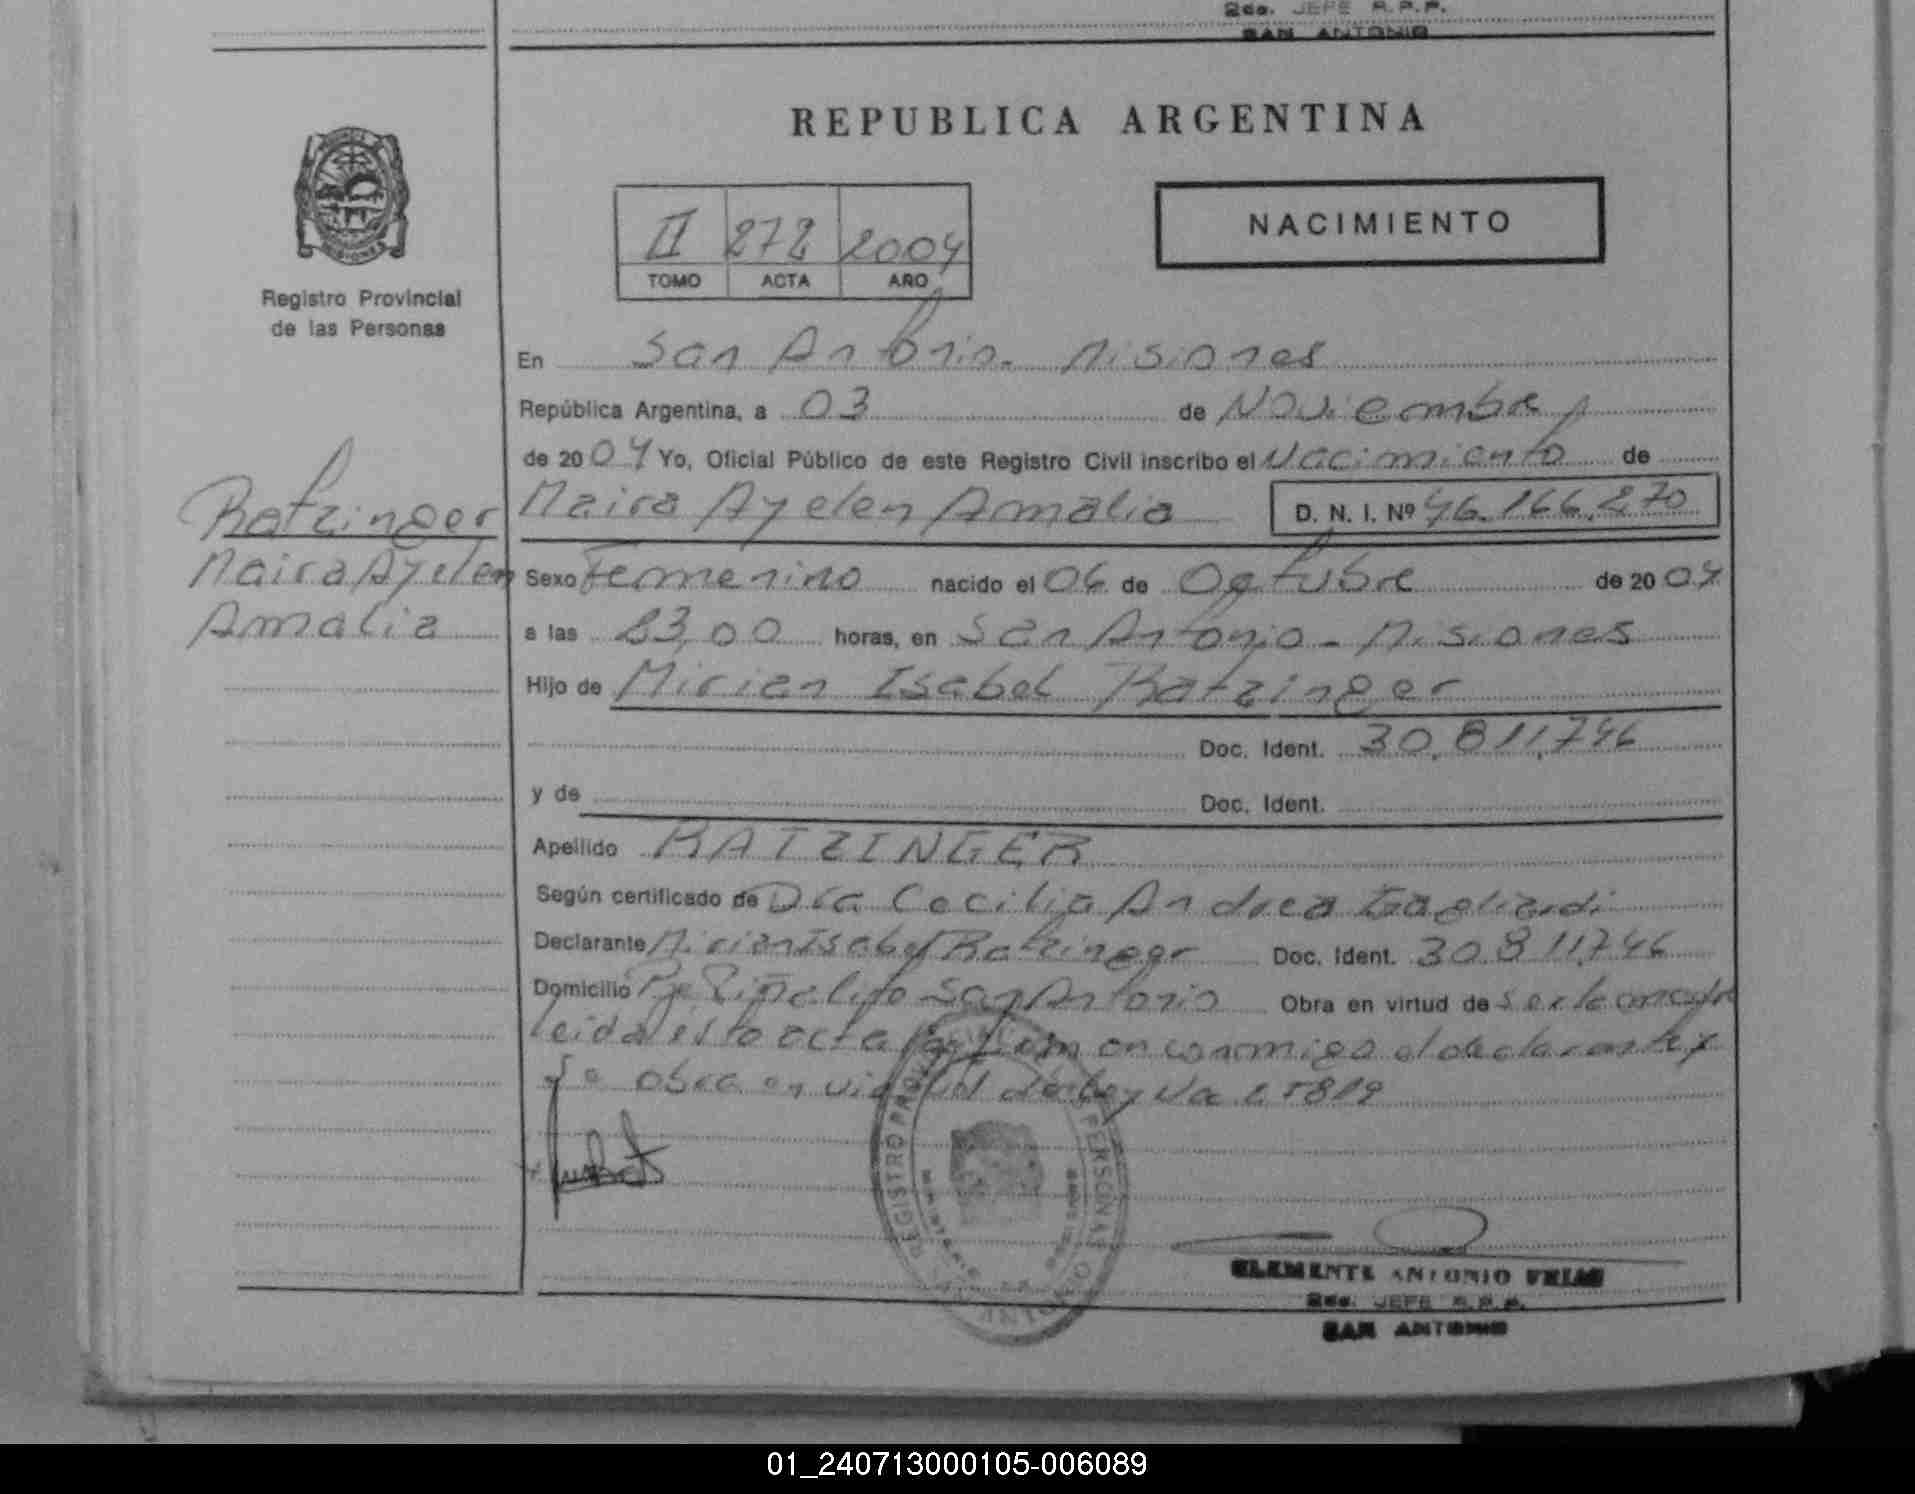 2do. JEFE R.P.P.
SAN ANTONIO
REPUBLICA ARGENTINA
NACIMIENTO
II 272 2004
TOMO ACTA AÑO
MISIONES
Registro Provincial
de las Personas
En San Antonio - Misiones
República Argentina, a 03 de Noviembre
de 2004 Yo, Oficial Público de este Registro Civil inscribo el Nacimiento de
Ratzinger
Maira Ayelen Amalia D. N. I. Nº 46.166.270
Maira Ayelen
Amalia
Sexo Femenino nacido el 06 de Octubre de 2004
a las 23,00 horas, en San Antonio - Misiones
Hijo de Mirian Isabel Ratzinger
Doc. Ident. 30.811.746
y de Doc. Ident.
Apellido RATZINGER
Según certificado de Dra Cecilia Andrea Gagliardi
Declarante Mirian Isabel Ratzinger Doc. Ident. 30.811.746
Domicilio Piñalito San Antonio Obra en virtud de ser la madre
leida esta acta la firman conmigo el declarante y
Se obra en virtud de Ley
REGISTRO PROVINCIAL DE LAS PERSONAS
CLEMENTE ANTONIO
2do. JEFE R.P.P.
SAN ANTONIO
01_240713000105-006089